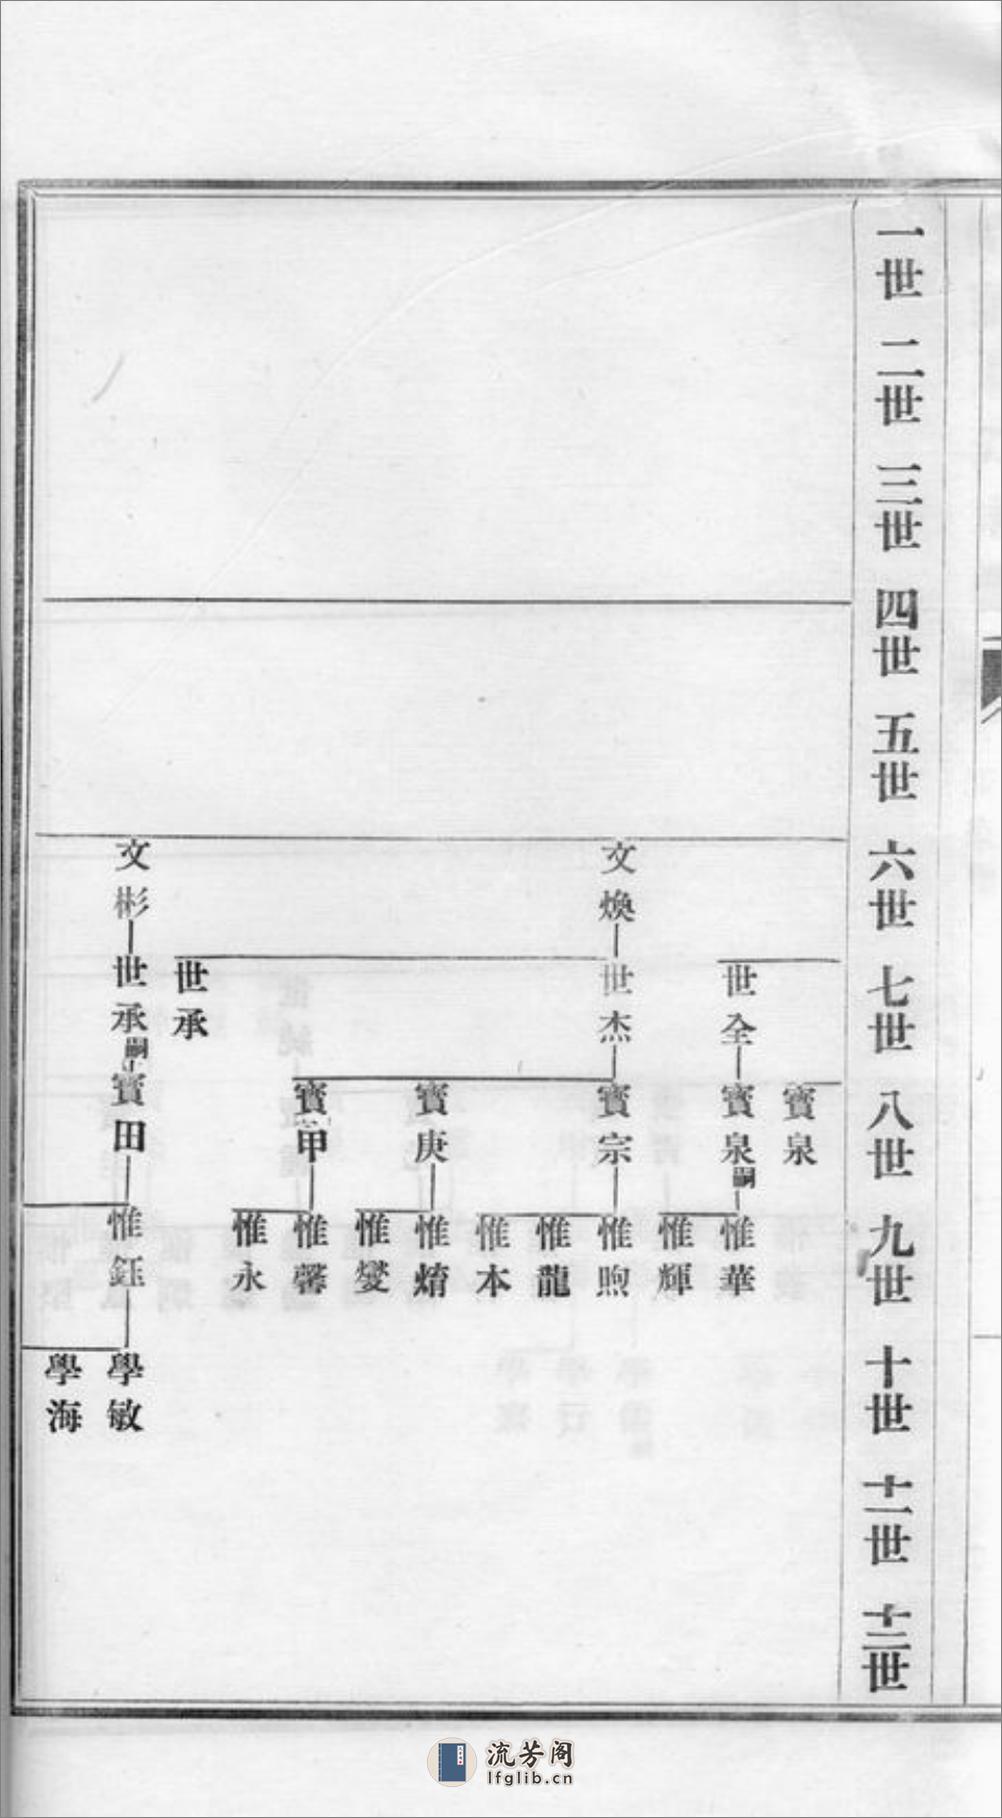 一世
二世
三世
四世
五世
六世
七世
八世
九世
十世
十一世
十二世
寶泉
世全
寶泉嗣
惟華
惟輝
文煥
世杰
寶宗
惟煦
惟龍
惟本
寶庚
惟焴
惟燮
寶甲
惟馨
惟永
世承
文彬
世承嗣
寶田
惟鈺
學敏
學海
流芳阁
lfglib.cn